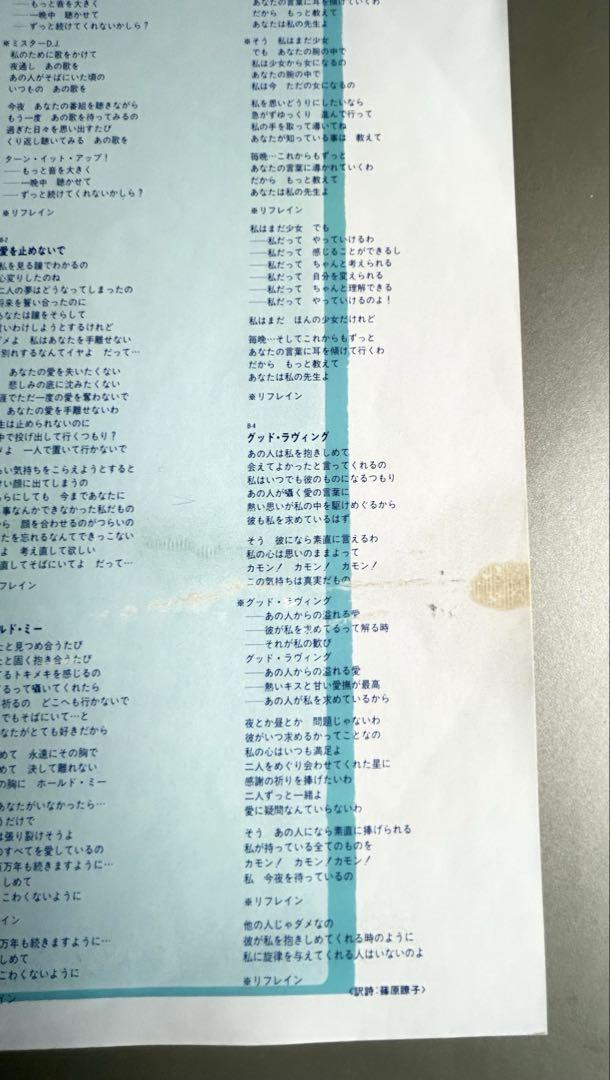 ――もっと音を大きく
――一晩中　聴かせて
――ずっと続けてくれないかしら？
※ミスターD.J.
私のために歌をかけて
夜通し　あの歌を
あの人がそばにいた頃の
いつもの　あの歌を
今夜　あなたの番組を聴きながら
もう一度　あの歌を待ってみるの
過ぎた日々を思い出すたび
くり返し聴いてみる　あの歌を
ターン・イット・アップ！
――もっと音を大きく
――一晩中　聴かせて
――ずっと続けてくれないかしら？
※リフレイン
B-2
愛を止めないで
私を見る瞳でわかるの
心変りしたのね
二人の夢はどうなってしまったの
将来を誓い合ったのに
あなたは瞳をそらして
言いわけしようとするけれど
ダメよ　私はあなたを手離せない
別れするなんてイヤよ　だって…
あなたの愛を失いたくない
悲しみの底に沈みたくない
涯でただ一度の愛を奪わないで
あなたの愛を手離せないわ
は止められないのに
中で投げ出して行くつもり？
メよ　一人で置いて行かないで
い気持ちをこらえようとすると
い顔に出てしまうの
らにしても　今まであなたに
事なんかできなかった私だもの
ら　顔を合わせるのがつらいの
たを忘れるなんてできっこない
よ　考え直して欲しい
直してそばにいてよ　だって…
フレイン
ルド・ミー
たと見つめ合うたび
たと固く抱き合うたび
るトキメキを感じるの
るって囁いてくれたら
祈るの　どこへも行かないで
でもそばにいて…と
なたがとても好きだから
めて　永遠にその胸で
めて　決して離れない
の胸に　ホールド・ミー
あなたがいなかったら…
うだけで
は張り裂けそうよ
のすべてを愛しているの
百万年も続きますように…
しめて
こわくないように
イン
万年も続きますように…
しめて
こわくないように
イン
あなたの言葉に耳を傾けていくわ
だから　もっと教えて
あなたは私の先生よ
※そう　私はまだ少女
でも　あなたの腕の中で
私は少女から女になるの
あなたの腕の中で
私は今　ただの女になるの
私を思いどうりにしたいなら
急がずゆっくり　進んで行って
私の手を取って導いてね
あなたが知っている事は　教えて
毎晩…これからもずっと
あなたの言葉に導かれていくわ
だから　もっと教えて
あなたは私の先生よ
※リフレイン
私はまだ少女　でも
――私だって　やっていけるわ
――私だって　感じることができるし
――私だって　ちゃんと考えられる
――私だって　自分を変えられる
――私だって　ちゃんと理解できる
――私だって　やっていけるのよ！
私はまだ　ほんの少女だけれど
毎晩…そしてこれからもずっと
あなたの言葉に耳を傾けて行くわ
だから　もっと教えて
あなたは私の先生よ
※リフレイン
B-4
グッド・ラヴィング
あの人は私を抱きしめて
会えてよかったと言ってくれるの
私はいつでも彼のものになるつもり
あの人が囁く愛の言葉に
熱い思いが私の中を駆けめぐるから
彼も私を求めているはず
そう　彼になら素直に言えるわ
私の心は思いのままよって
カモン！　カモン！　カモン！
この気持ちは真実だもの
※グッド・ラヴィング
――あの人からの溢れる愛
――彼が私を求めてるって解る時
――それが私の歓び
グッド・ラヴィング
――あの人からの溢れる愛
――熱いキスと甘い愛撫が最高
――あの人が私を求めているから
夜とか昼とか　問題じゃないわ
彼がいつ求めるかってことなの
私の心はいつも満足よ
二人をめぐり会わせてくれた星に
感謝の祈りを捧げたいわ
二人ずっと一緒よ
愛に疑問なんていらないわ
そう　あの人になら素直に捧げられる
私が持っている全てのものを
カモン！　カモン！カモン！
私　今夜を待っているの
※リフレイン
他の人じゃダメなの
彼が私を抱きしめてくれる時のように
私に旋律を与えてくれる人はいないのよ
※リフレイン
〈訳詩：篠原瞭子〉